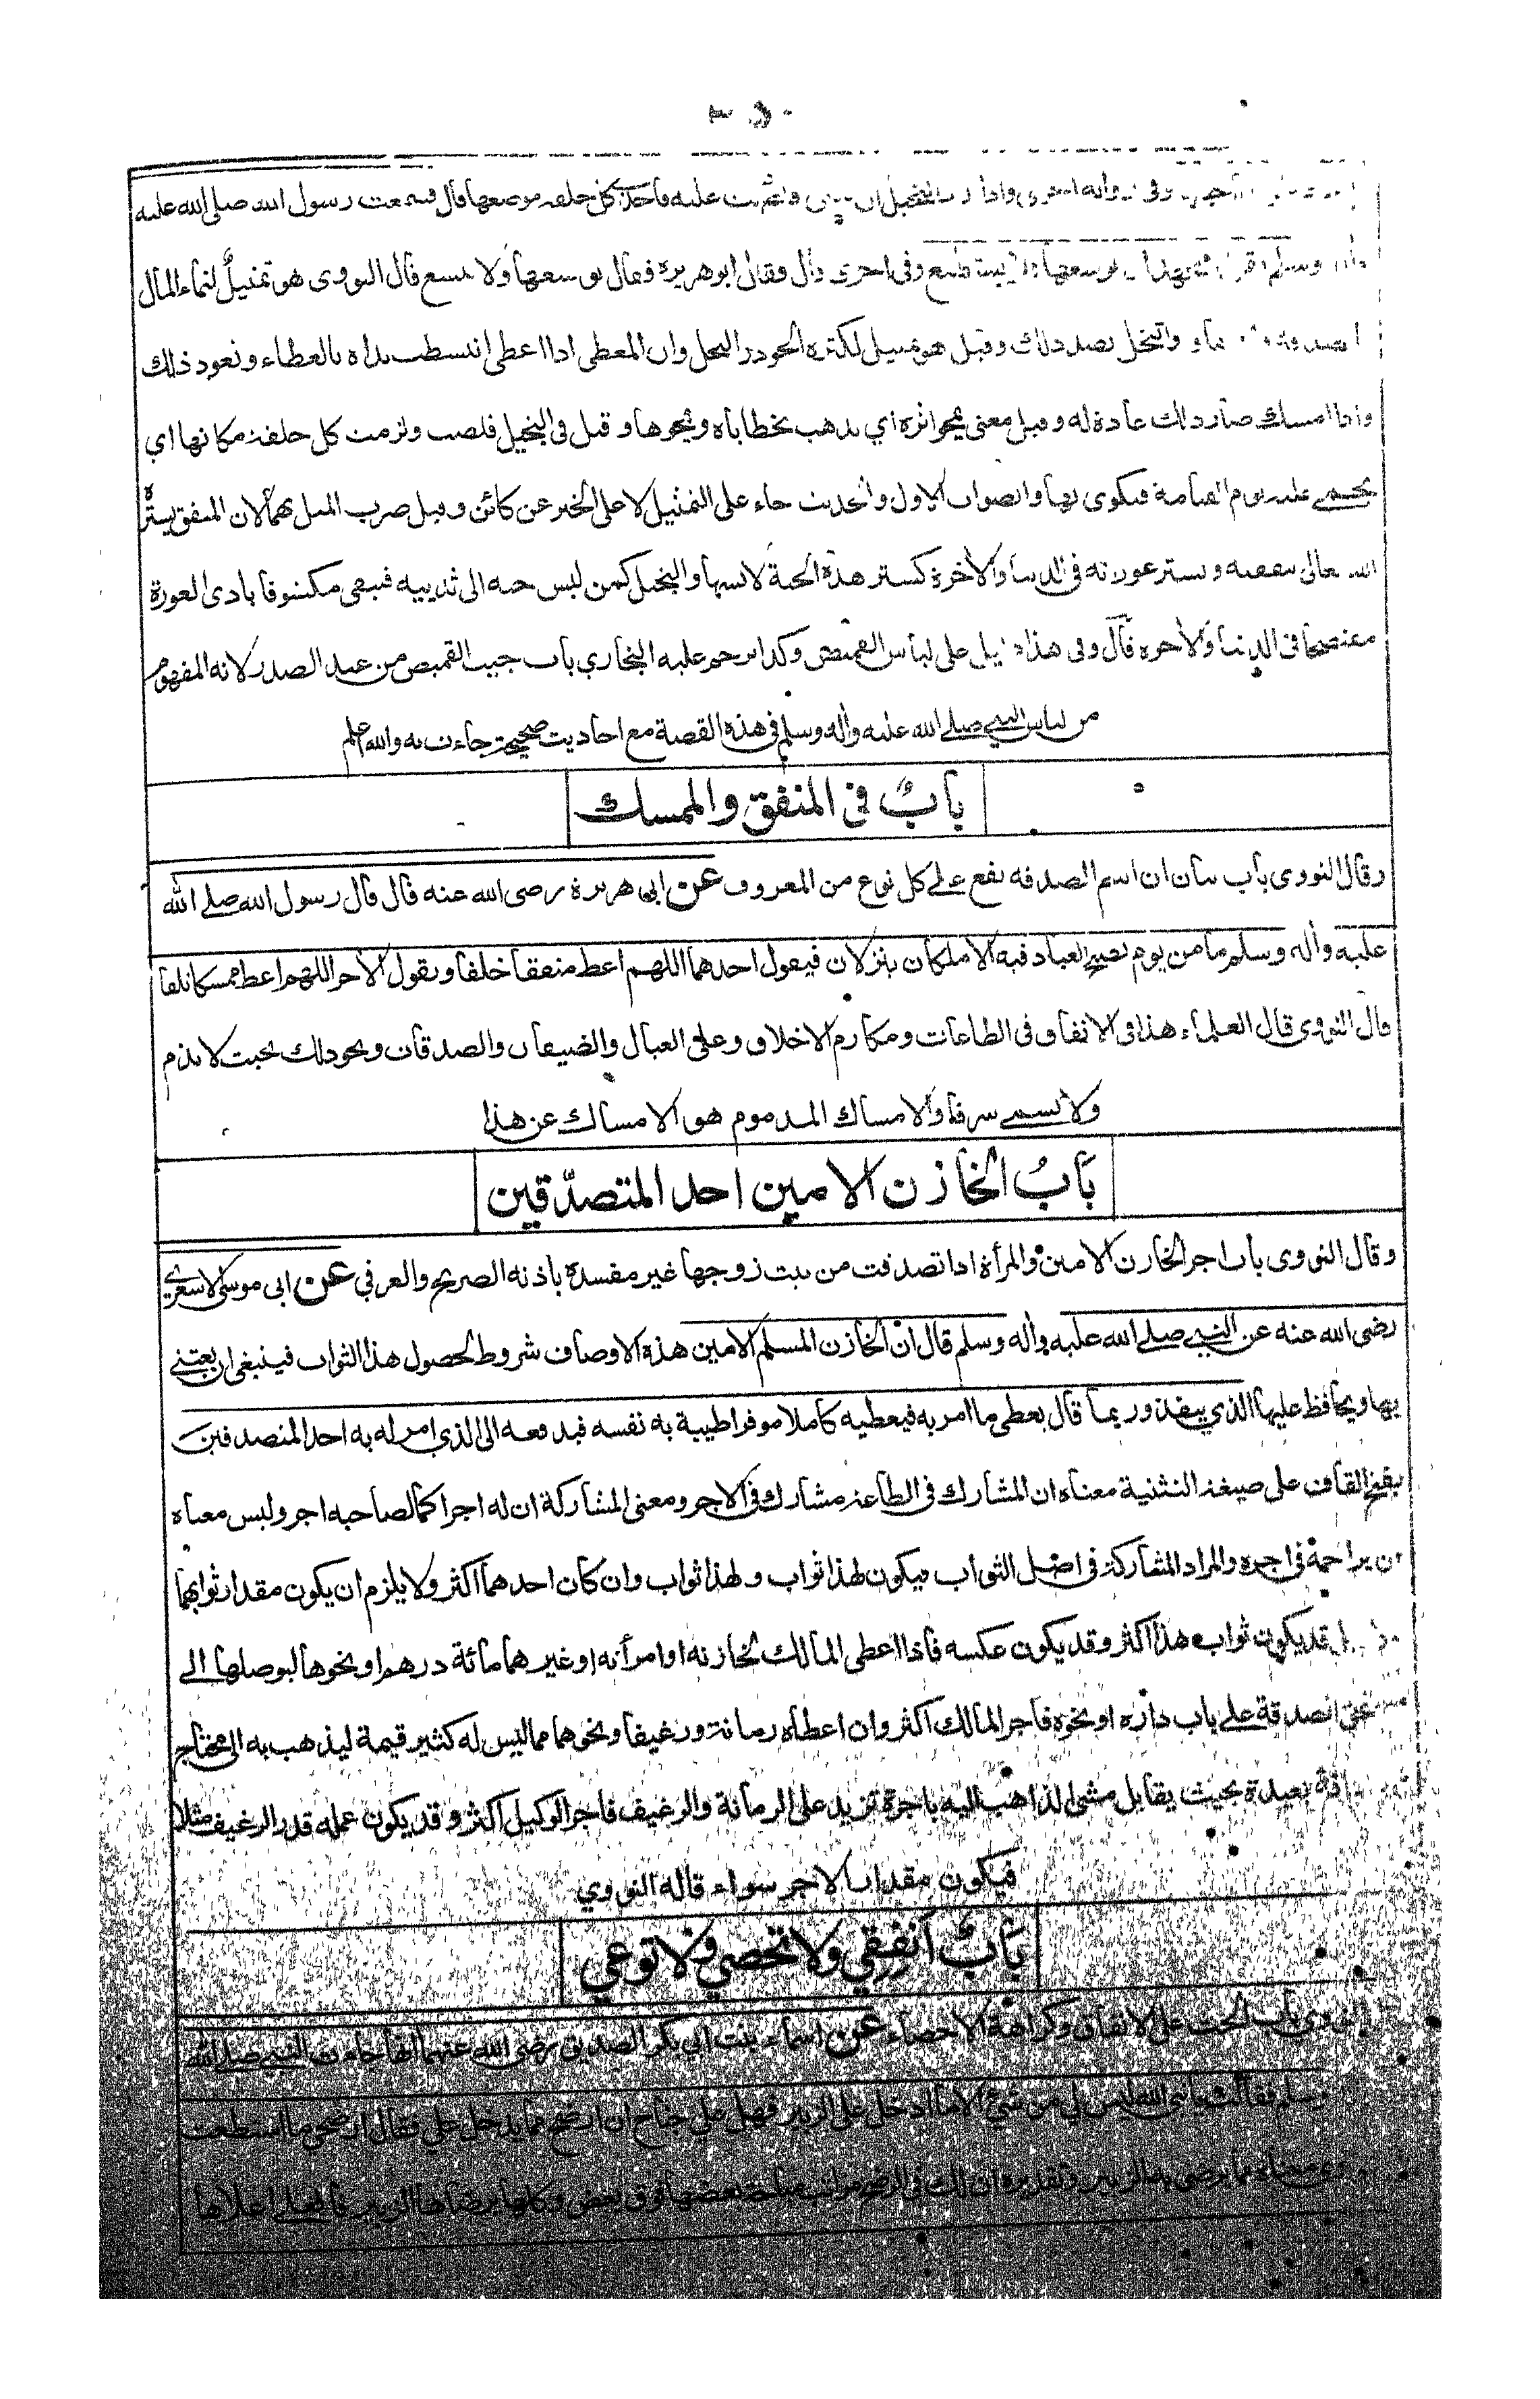 واخذت كل حلقة موضعها قال فسمعت رسول الله صلى الله عليه
وسلم يوسعها فلا يستطيع وفي اخرى قال وقال ابو هريرة فقال يوسعها ولا تتسع قال النووى هو تمثيل لنماء المال
والبخل بضد ذلك وقيل هو تمثيل لكثرة الجود والبخل وان المعطى اذا اعطى انبسطت يداه بالعطاء وتعود ذلك
واذا امسك صار ذلك عادة له وقيل معنى يمحو اثره اي يذهب بخطاياه ويمحوها وقيل فى البخيل قلصت ولزمت كل حلقة مكانها اي
يحمى عليه يوم القيامة فيكوى بها والصواب الاول والحديث جاء على التمثيل لا على الخبر عن كائن وقيل ضرب المثل بهما لان المنفق يستره
الله تعالى بنفقته ويستر عوراته فى الدنيا والاخرة كستر هذه الجبة لابسها والبخيل كمن لبس جبة الى ثدييه فيبقى مكشوفا بادى العورة
مفتضحا فى الدنيا والاخرة قال وفى هذا دليل على لباس القميص وكذا ترجم عليه البخاري باب جيب القميص من عند الصدر لانه المفهوم
من لباس النبي صلے الله عليه واله وسلم فى هذه القصة مع احاديث صحيحة جاءت به والله اعلم
بابٌ فى المنفق والممسك
وقال النووى باب بيان ان اسم الصدقة يقع على كل نوع من المعروف عن ابى هريرة رضى الله عنه قال قال رسول الله صلے الله
عليه واله وسلم ما من يوم يصبح العباد فيه الا ملكان ينزلان فيقول احدهما اللهم اعط منفقا خلفا ويقول الاخر اللهم اعط ممسكا تلفا
قال النووى قال العلماء هذا فى الانفاق فى الطاعات ومكارم الاخلاق وعلى العيال والضيفان والصدقات ونحو ذلك بحيث لا يذم
ولا يسمى سرفا والامساك المذموم هو الامساك عن هذا
بَابُ الخازن الامين احد المتصدّقين
وقال النووى باب اجر الخازن الامين والمرأة اذا تصدقت من بيت زوجها غير مفسدة باذنه الصريح والعرفي عن ابى موسى الاشعري
رضى الله عنه عن النبي صلے الله عليه واله وسلم قال ان الخازن المسلم الامين هذه الاوصاف شروط لحصول هذا الثواب فينبغى ان يعتنى
بها ويحافظ عليها الذي ينفذ وربما قال يعطى ما امر به فيعطيه كاملا موفرا طيبة به نفسه فيدفعه الى الذي امر له به احد المتصدقين
بفتح القاف على صيغة التثنية معناه ان المشارك فى الطاعة مشارك فى الاجر ومعنى المشاركة ان له اجرا كما لصاحبه اجر وليس معناه
ان يزاحمه فى اجره والمراد المشاركة فى اصل الثواب فيكون لهذا ثواب ولهذا ثواب وان كان احدهما اكثر ولا يلزم ان يكون مقدار ثوابهما
قد يكون ثواب هذا اكثر وقد يكون عكسه فاذا اعطى المالك لخازنه او امرأته او غيرهما مائة درهم او نحوها ليوصلها الى
الصدقة على باب داره او نحوه فاجر المالك اكثر وان اعطاه رمانة ورغيفا ونحوهما مما ليس له كثير قيمة ليذهب به الى محتاج
بعيدة بحيث يقابل مشى الذاهب اليه باجرة تزيد على الرمانة والرغيف فاجر الوكيل اكثر وقد يكون عمله قدر الرغيف مثلا
فيكون مقدار الاجر سواء قاله النووي
بَابٌ انفقي ولا تحصي ولا توعي
باب الحث على الانفاق وكراهة الاحصاء عن اسماء بنت ابي بكر الصديق رضى الله عنهما انها جاءت النبي صلے الله
وسلم فقالت يا نبي الله ليس لي من شيء الا ما ادخل على الزبير فهل علي جناح ان ارضخ مما يدخل علي فقال ارضخي ما استطعت
معناه مما يرضى به الزبير وتقديره ان لك فى الرضخ مراتب مباحة بعضها فوق بعض وكلها يرضاها الزبير فافعلى اعلاها